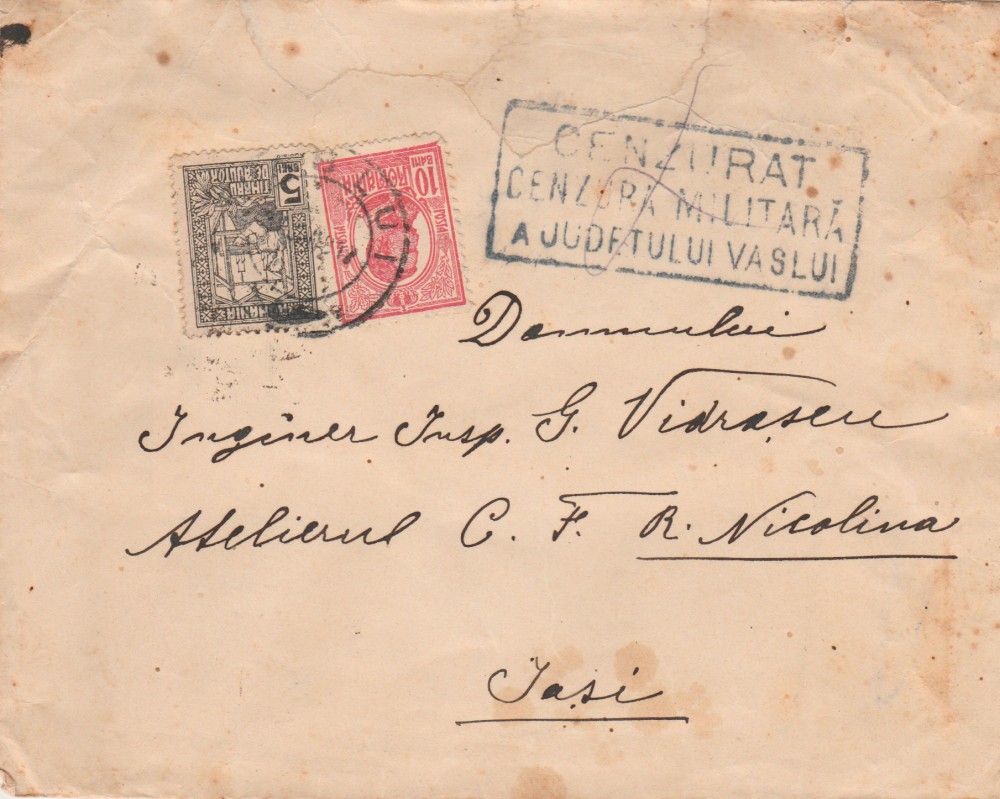 CENZURAT
CENZURA MILITARĂ
A JUDEȚULUI VASLUI
5 BANI
TIMBRU
DE AJUTOR
ROMANIA
10 BANI
ROMANIA
POSTA
POSTA
Domnului
Inginer Insp. G. Vidrașcu
Atelierul C. F. R. Nicolina
Iași